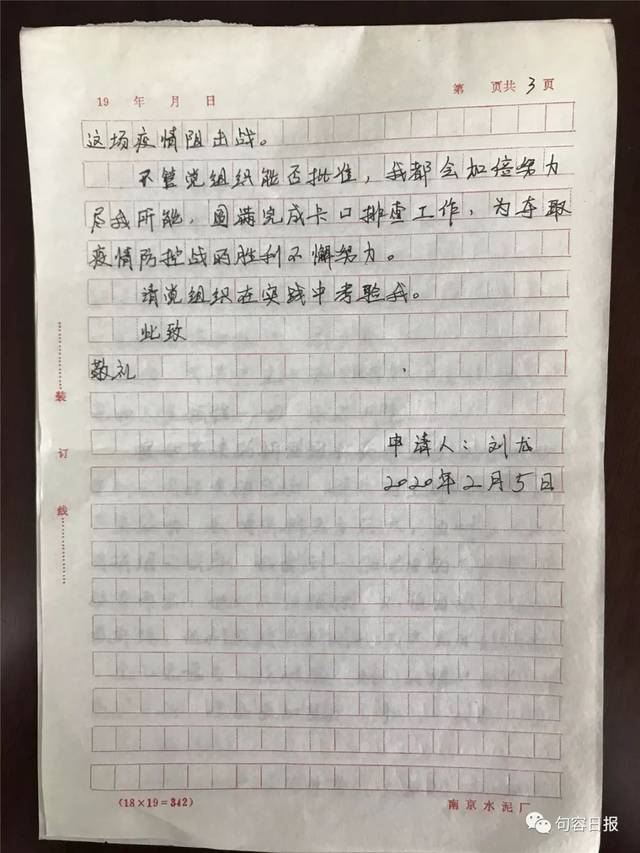 19 年 月 日 第 页共 3 页
这场疫情阻击战。
不管党组织能否批准，我都会加倍努力
尽我所能，圆满完成卡口排查工作，为夺取
疫情防控战的胜利不懈努力。
请党组织在实践中考验我。
此致
敬礼
申请人：刘龙
2020年2月5日
装
订
线
(18×19=342) 南京水泥厂
句容日报